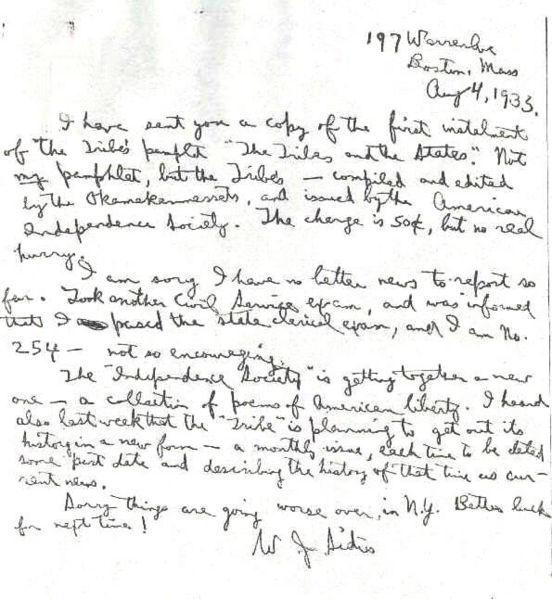 197 Warren Ave
Boston, Mass
Aug 4, 1933.
I have sent you a copy of the first instalment
of the Tribe's pamphlet "The Tribes and the States." Not
my pamphlet, but the Tribe's — compiled and edited
by the Okamakammessets, and issued by the American
Independence Society. The charge is 50¢, but no real
hurry.
I am sorry I have no better news to report so
far. Took another Civil Service exam, and was informed
that I passed the state clerical exam, and I am No.
254 — not so encouraging.
The "Independence Society" is getting together a new
one — a collection of poems of American liberty. I heard
also last week that the "Tribe" is planning to get out its
history in a new form — a monthly issue, each time to be dated
some past date and describing the history of that time as cur-
rent news.
Sorry things are going worse over in N.Y. Better luck
for next time!
W J Sidis